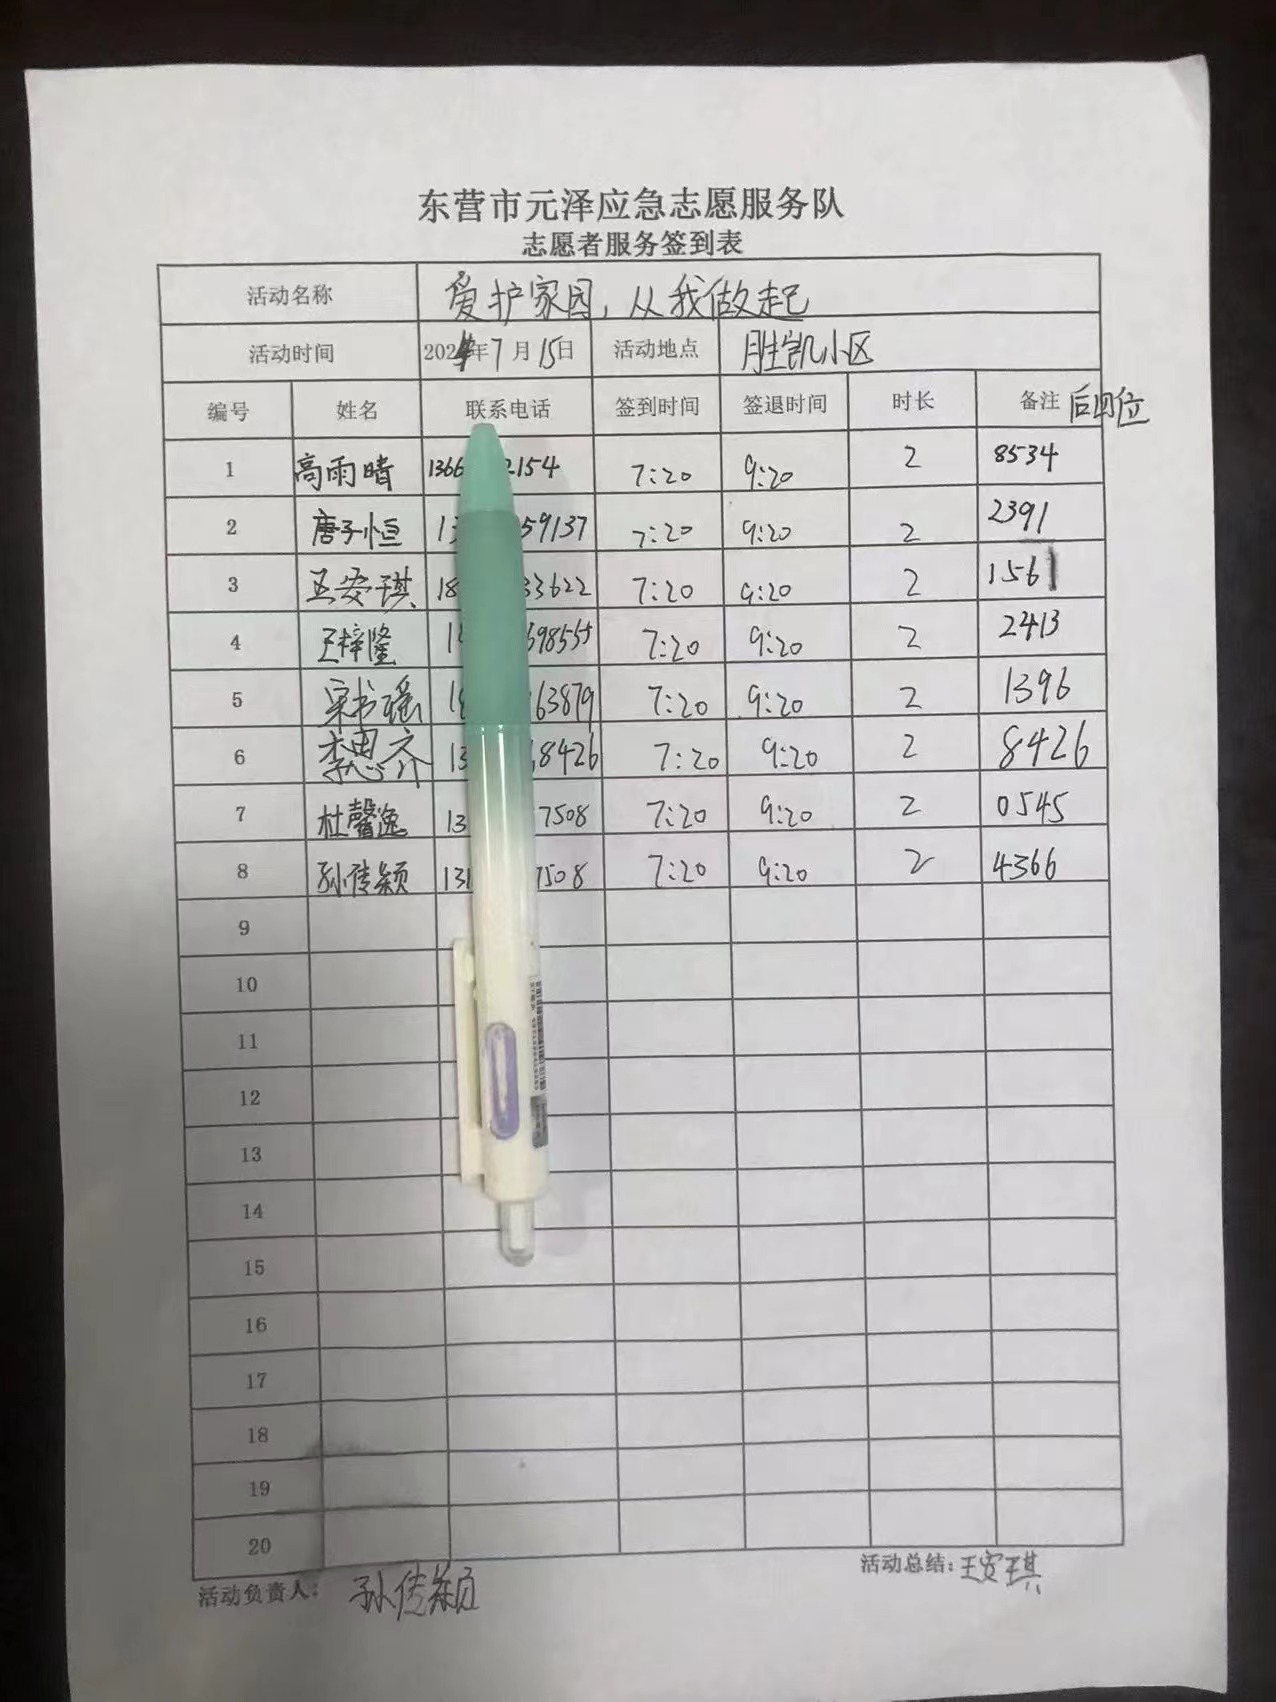 东营市元泽应急志愿服务队
志愿者服务签到表
活动名称 爱护家园，从我做起
活动时间 2024年7月15日 活动地点 胜凯小区
编号 姓名 联系电话 签到时间 签退时间 时长 备注 后四位
1 高雨晴 1366 2154 7:20 9:20 2 8534
2 唐子恒 13 59137 7:20 9:20 2 2391
3 王安琪 18 33622 7:20 9:20 2 1561
4 王梓隆 1 698555 7:20 9:20 2 2413
5 宋书瑶 18 63879 7:20 9:20 2 1396
6 李思齐 13 18426 7:20 9:20 2 8426
7 杜馨逸 13 7508 7:20 9:20 2 0545
8 孙传颖 131 7508 7:20 9:20 2 4366
9
10
11
12
13
14
15
16
17
18
19
20
活动负责人： 孙传颖 活动总结：王安琪